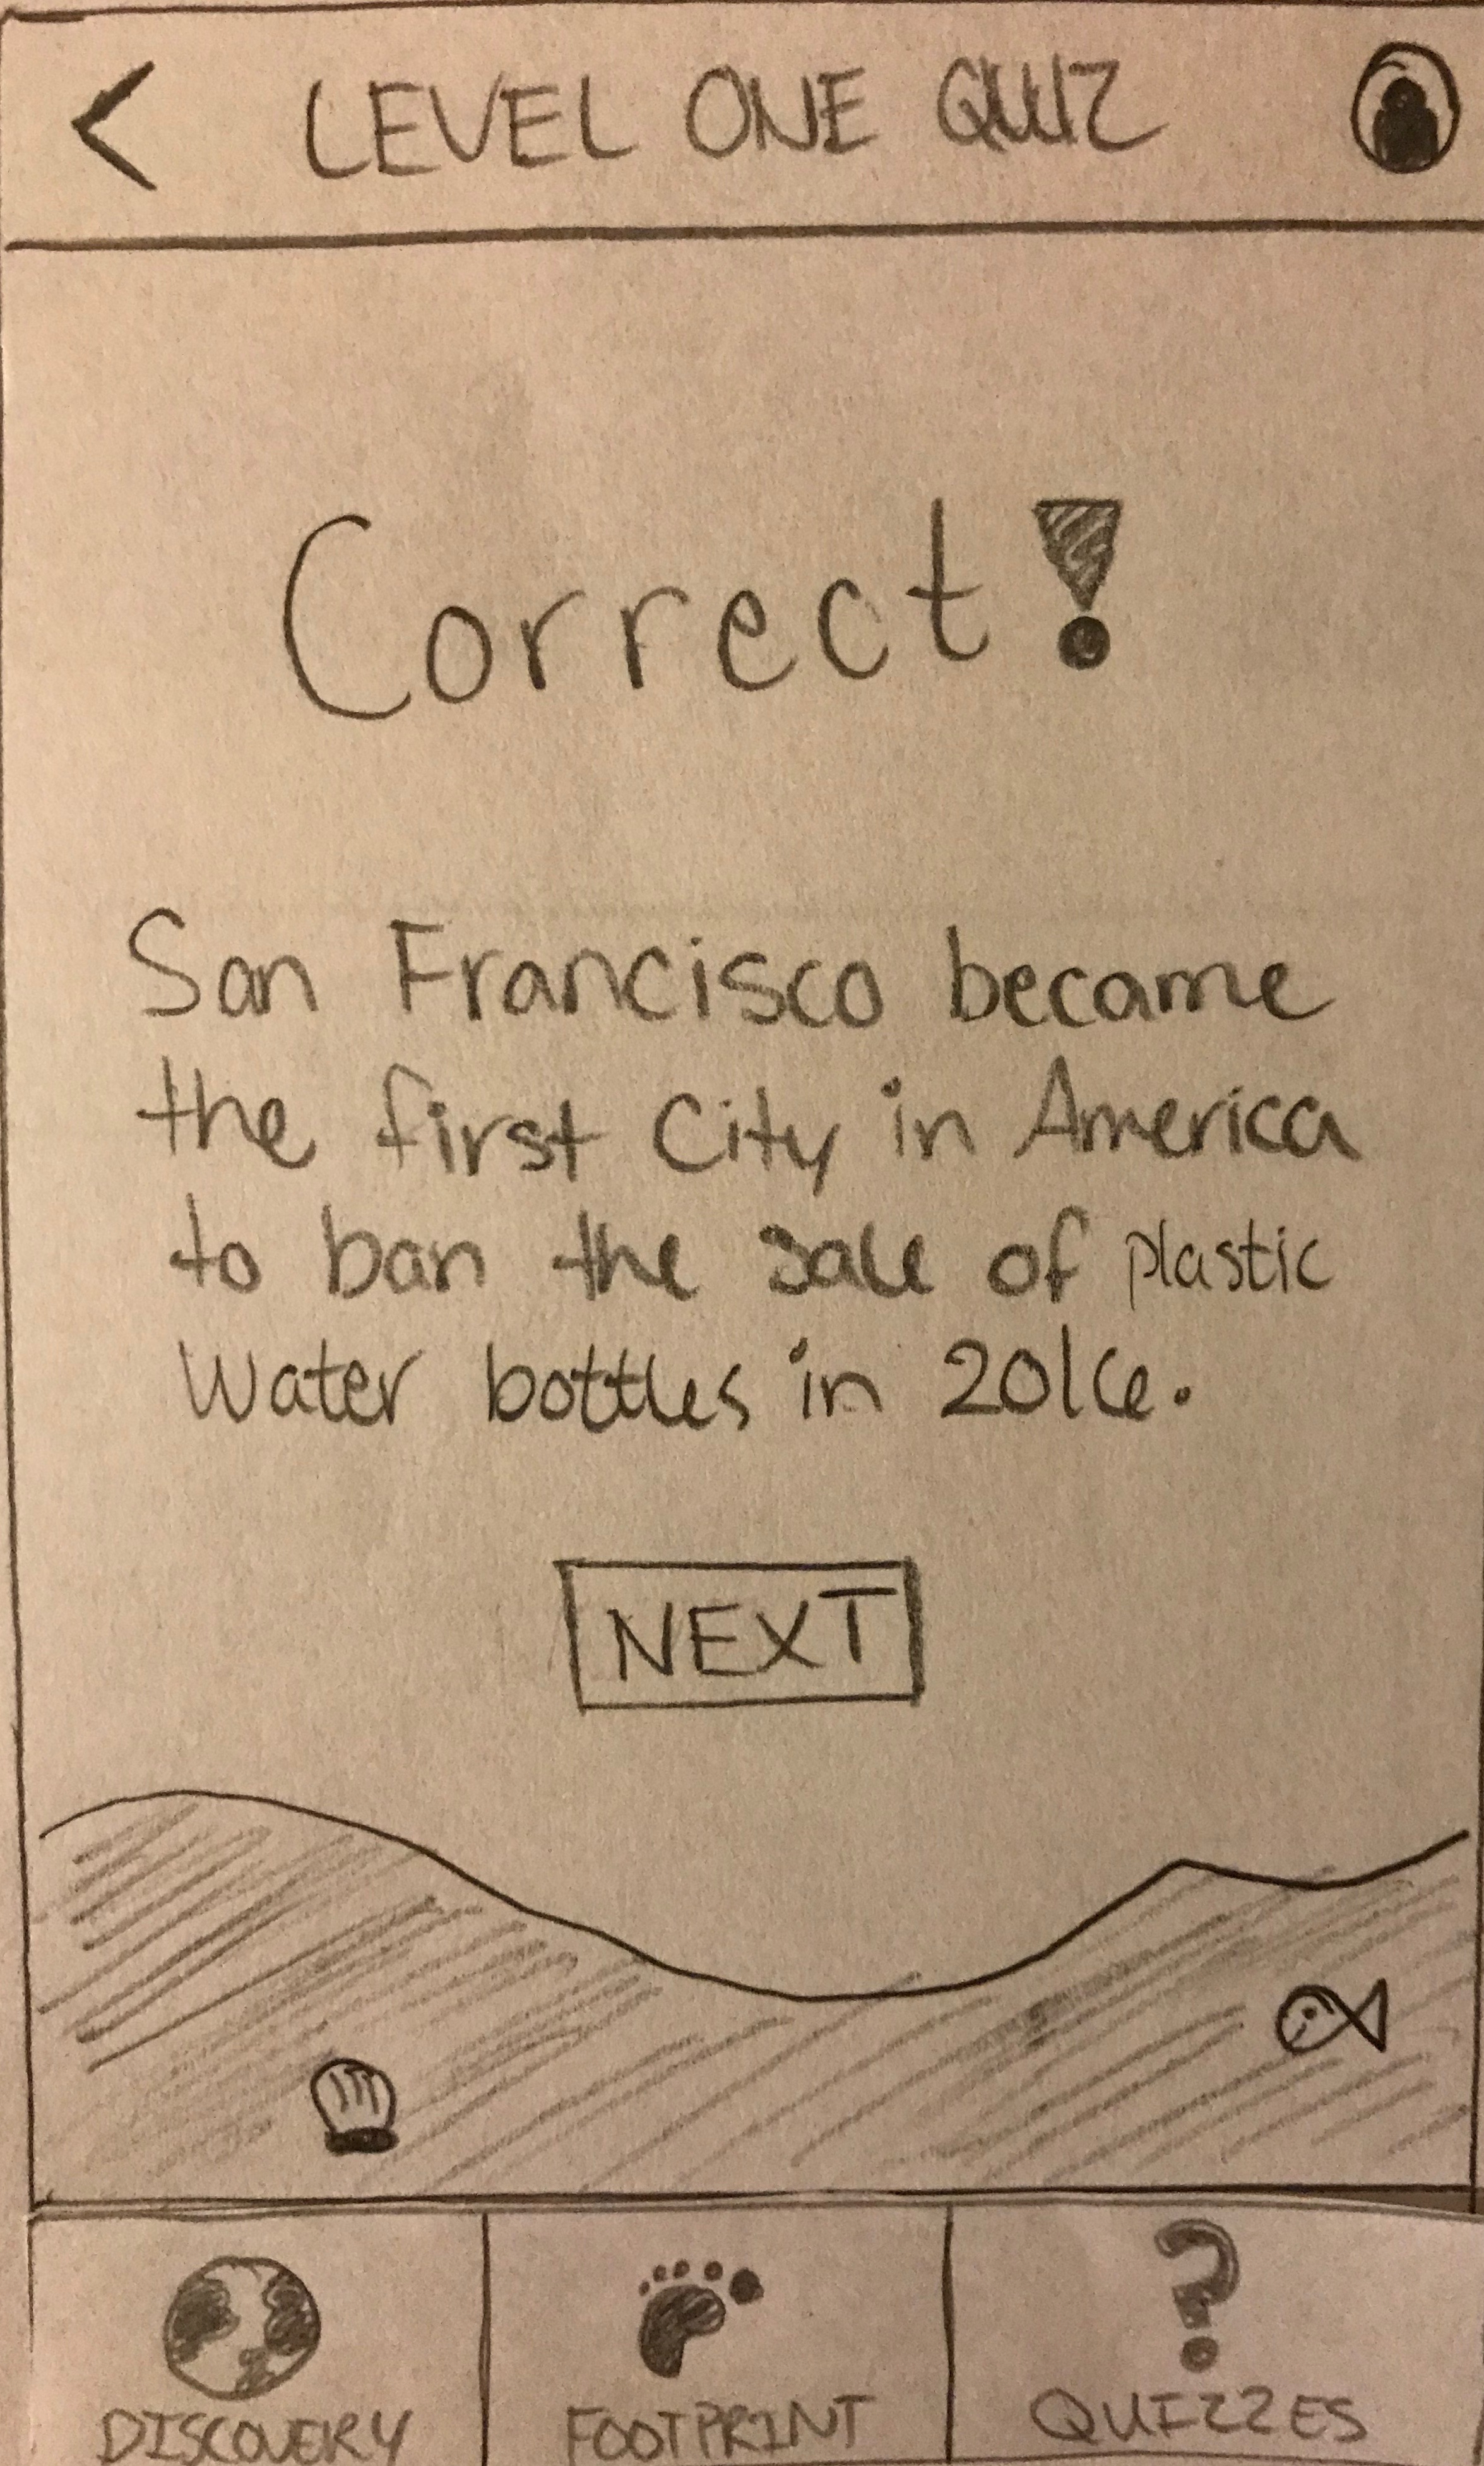 < LEVEL ONE QUIZ
Correct!
San Francisco became
the first City in America
to ban the sale of plastic
Water bottles in 2016.
NEXT
?
DISCOVERY FOOTPRINT QUIZZES